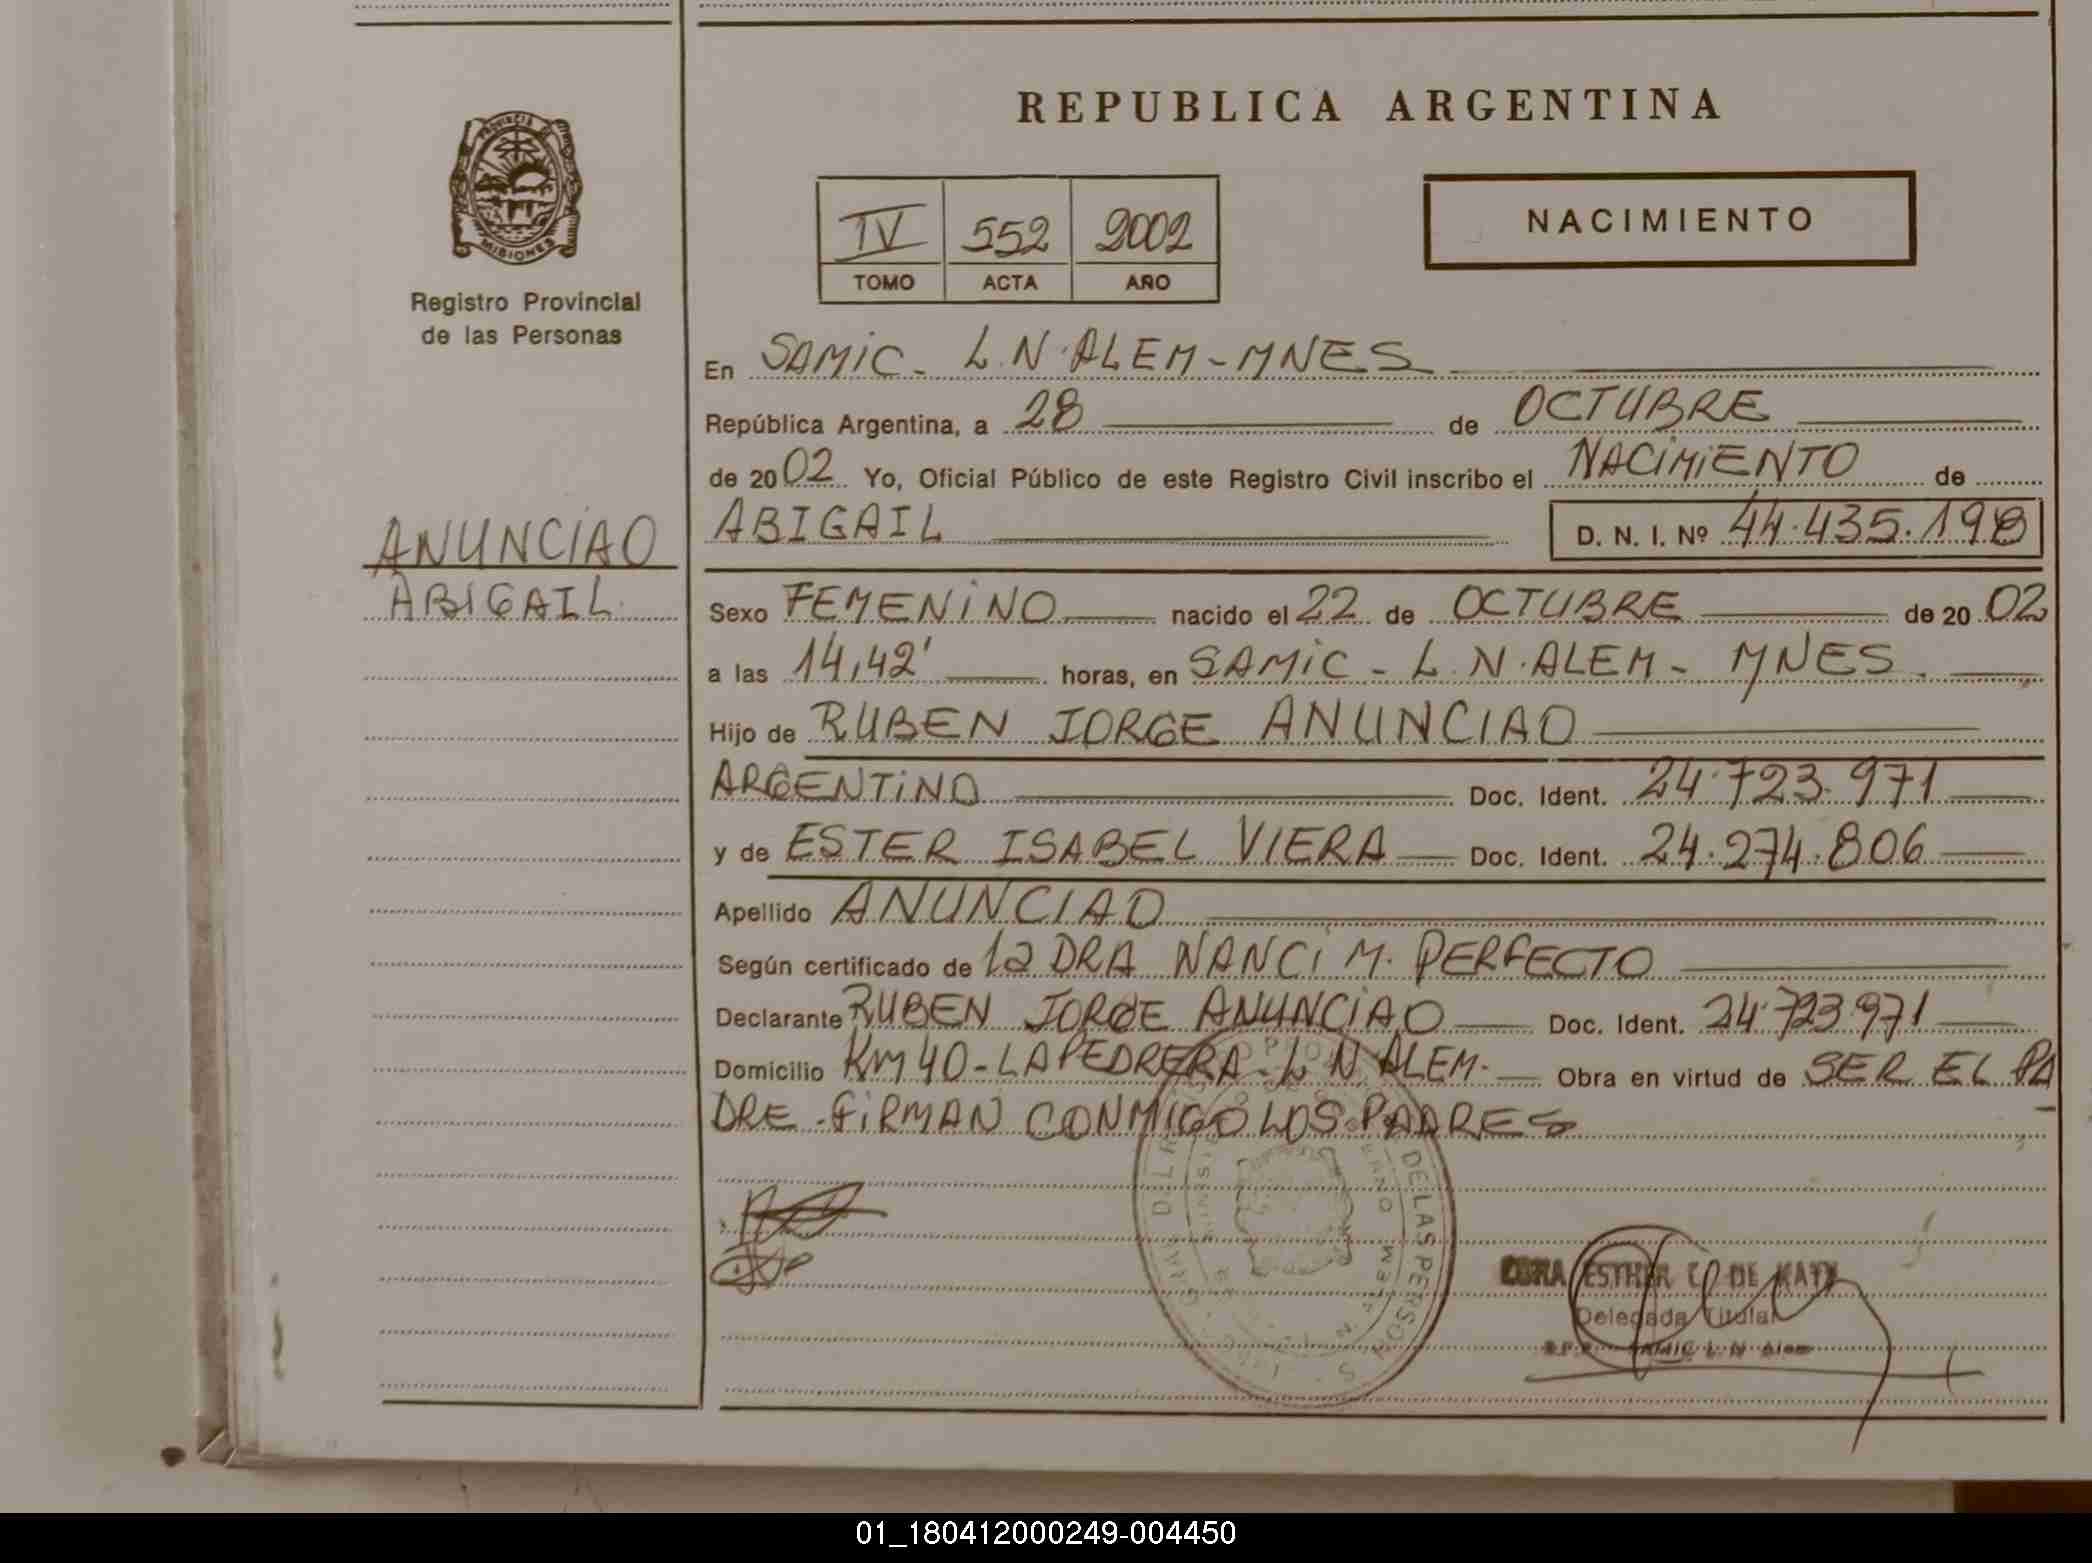 REPUBLICA ARGENTINA
PROVINCIA DE
MISIONES
Registro Provincial
de las Personas
IV 552 2002
TOMO ACTA AÑO
NACIMIENTO
En SAMIC - L.N. ALEM - MNES
República Argentina, a 28 de OCTUBRE
de 2002 Yo, Oficial Público de este Registro Civil inscribo el NACIMIENTO de
ABIGAIL D. N. I. Nº 44.435.198
ANUNCIAO
ABIGAIL
Sexo FEMENINO nacido el 22 de OCTUBRE de 20 02
a las 14,42' horas, en SAMIC - L.N. ALEM - MNES
Hijo de RUBEN JORGE ANUNCIAO
ARGENTINO Doc. Ident. 24.723.971
y de ESTER ISABEL VIERA Doc. Ident. 24.274.806
Apellido ANUNCIAO
Según certificado de la DRA NANCI M. PERFECTO
Declarante RUBEN JORGE ANUNCIAO Doc. Ident. 24.723.971
Domicilio KM 40 - LA PEDRERA - L N ALEM - Obra en virtud de SER EL PA
DRE - FIRMAN CONMIGO LOS PADRES
DE LAS PERSONAS
ESTHER DE
Delegada Titular
SAMIC L. N. Alem
01_180412000249-004450